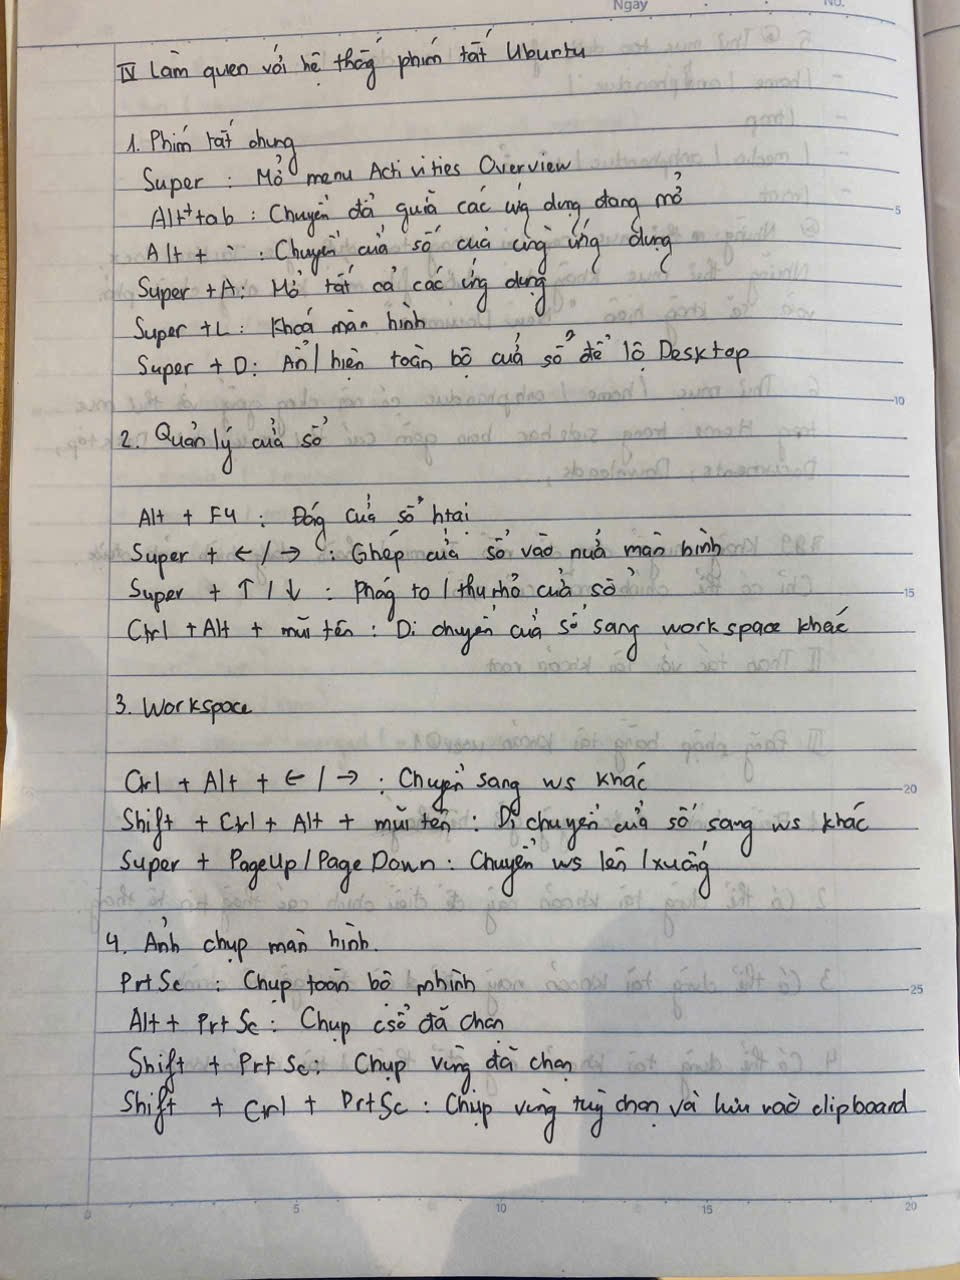 Ngày No.
IV Làm quen với hệ thống phím tắt Ubuntu
1. Phím tắt chung
Super : Mở menu Activities Overview
Alt + tab : Chuyển đổi giữa các ứng dụng đang mở
Alt + ` : Chuyển cửa sổ của cùng ứng dụng
Super + A : Mở tất cả các ứng dụng
Super + L : Khoá màn hình
Super + D : Ẩn / hiện toàn bộ cửa sổ để lộ Desktop
2. Quản lý cửa sổ
Alt + F4 : Đóng cửa sổ htại
Super + ← / → : Ghép cửa sổ vào nửa màn hình
Super + ↑ / ↓ : Phóng to / thu nhỏ cửa sổ
Ctrl + Alt + mũi tên : Di chuyển cửa sổ sang workspace khác
3. Workspace
Ctrl + Alt + ← / → : Chuyển sang ws khác
Shift + Ctrl + Alt + mũi tên : Di chuyển cửa sổ sang ws khác
Super + PageUp / Page Down : Chuyển ws lên / xuống
4. Ảnh chụp màn hình.
PrtSc : Chụp toàn bộ mhình
Alt + Prt Sc : Chụp csổ đã chọn
Shift + Prt Sc : Chụp vùng đã chọn
Shift + Ctrl + PrtSc : Chụp vùng tuỳ chọn và lưu vào clipboard
5
10
15
20
25
5 10 15 20